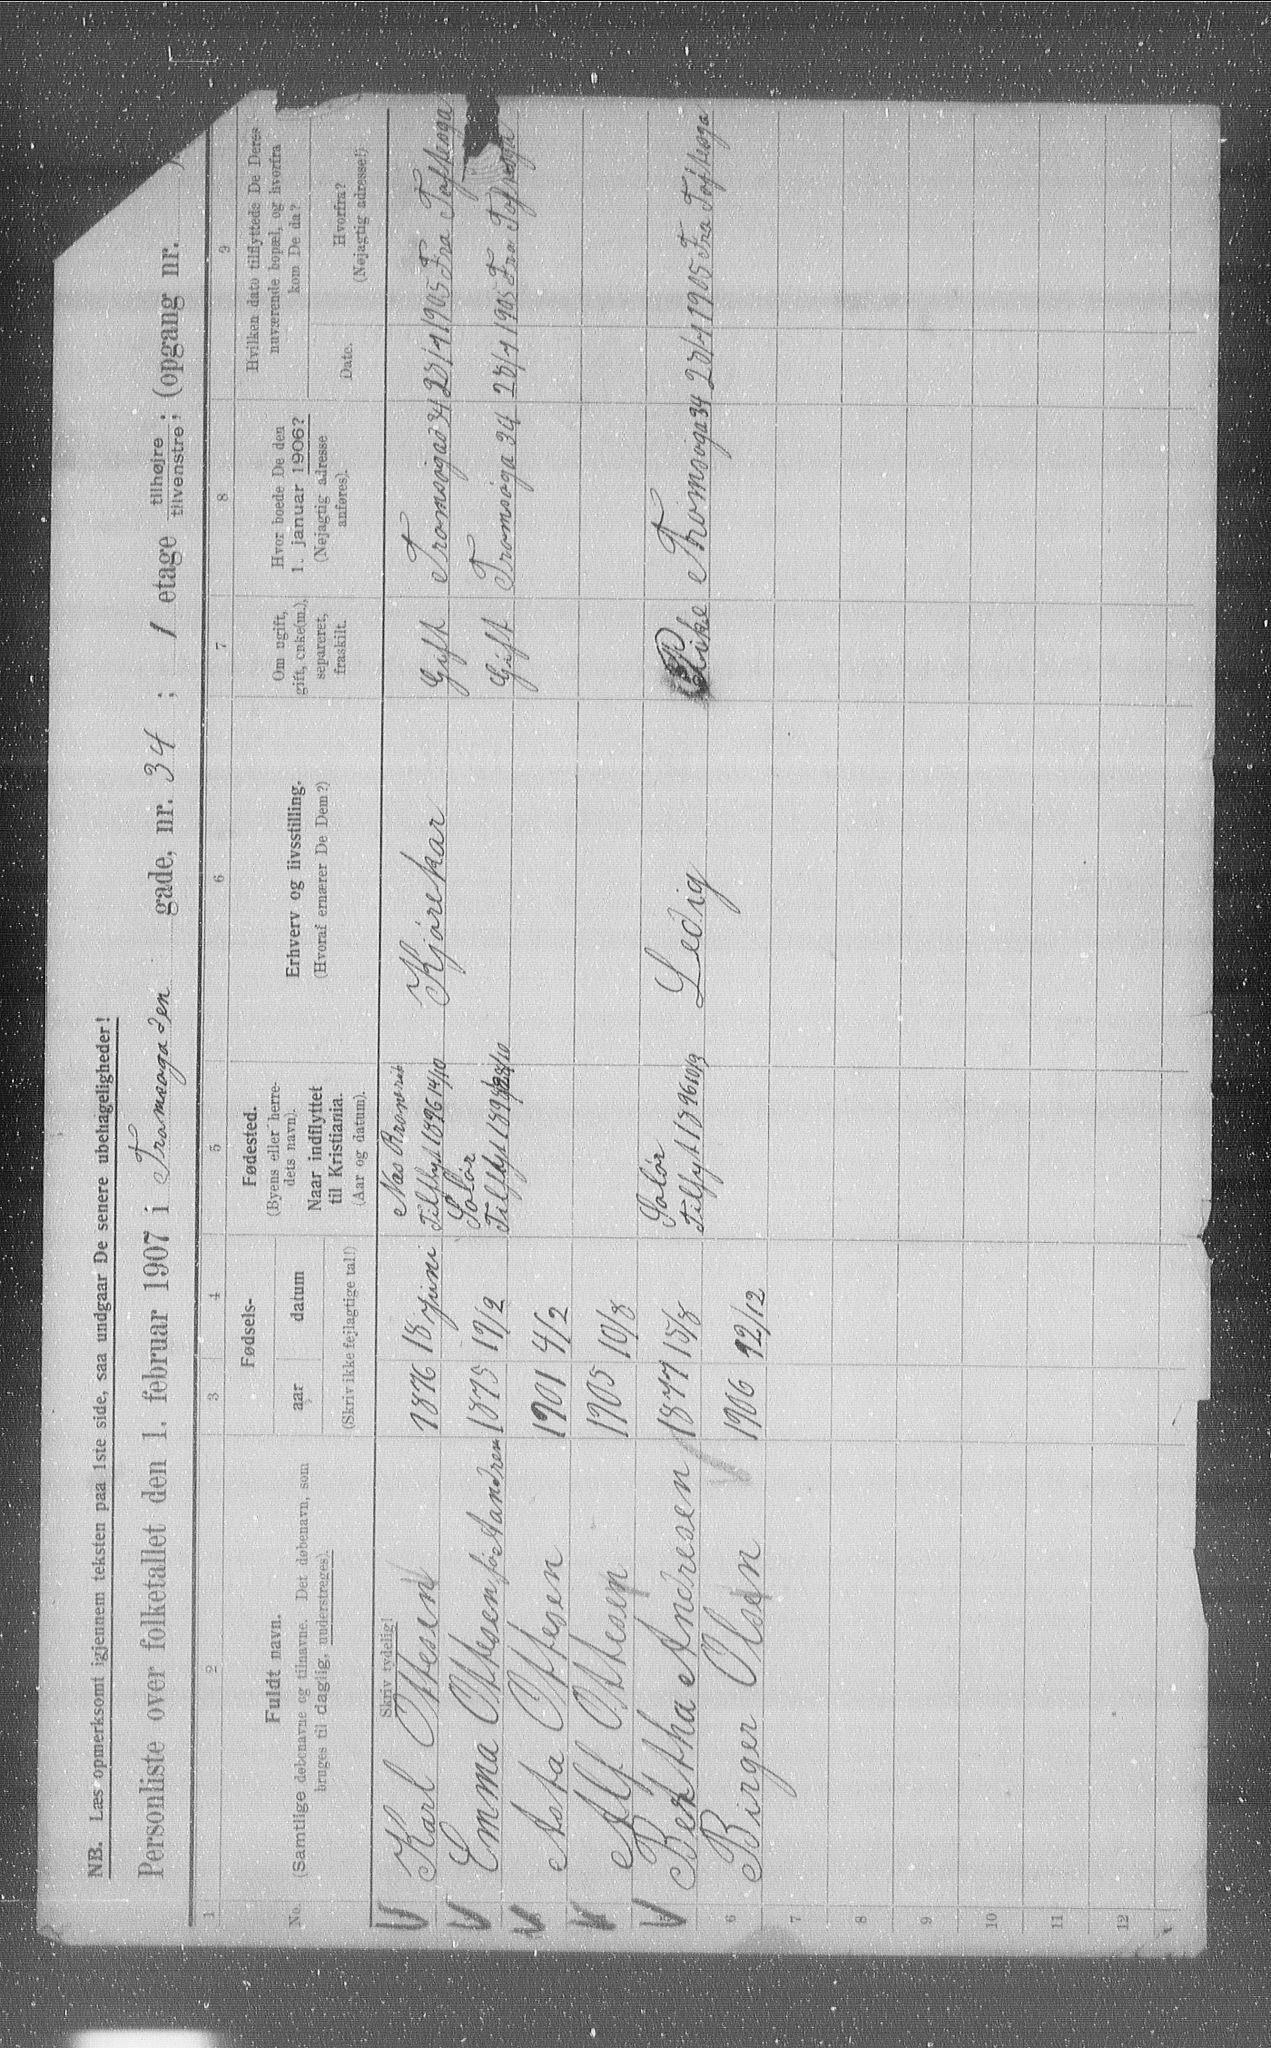 NB. Læs opmerksomt igjennem teksten paa 1ste side, saa undgaar De senere ubehageligheder!
Personliste over folketallet den 1. februar 1907 i Tromsøgaden gade, nr. 34 ; 1 etage tilhøjre tilvenstre; (opgang nr.
1 2 3 4 5 6 7 8 9
No.
Fuldt navn.
(Samtlige døbenavne og tilnavne. Det døbenavn, som
bruges til daglig, understreges).
Fødsels-
aar datum
(Skriv ikke fejlagtige tal!)
Fødested.
(Byens eller herre-
dets navn).
Naar indflyttet
til Kristiania.
(Aar og datum).
Erhverv og livsstilling.
(Hvoraf ernærer De Dem?)
Om ugift,
gift, enke(m.),
separeret,
fraskilt.
Hvor boede De den
1. januar 1906?
(Nøjagtig adresse
anføres).
Hvilken dato tilflyttede De Deres
nuværende bopæl, og hvorfra
kom De da?
Date.
Hvorfra?
(Nøjagtig adresse!)
Skriv tydelig!
Karl Ottesen 1876 18 Juni Næs Romerike Tilflyt 1896 14/10 Kjørekar Gift Tromsøgad 34 28/4 1905 Fra Toftesga
Emma Ottesen fø Andresen 1875 17/2 Solør Tilflyt 28/10 Gift Tromsøga 34 28/4 1905 Fra Toftesga
Asta Ottesen 1901 4/2
Alf Ottesen 1905 10/8
5 Berthae Andresen 1877 15/8 Solør Tilflyt 1896 10/3 Ledig Thomsøga 34 28/4 1905 Fra Toftesga
6 Birger Olsen 1906 12/12
7
8
9
10
11
12